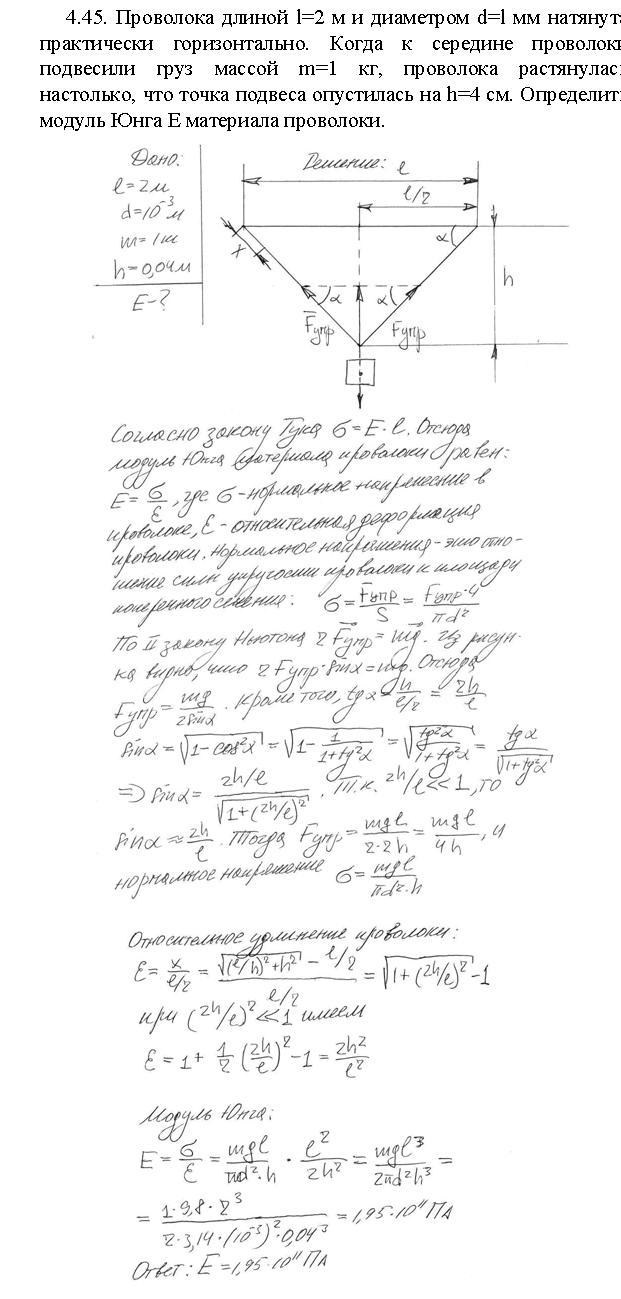 4.45. Проволока длиной l=2 м и диаметром d=l мм натянута
практически горизонтально. Когда к середине проволоки
подвесили груз массой m=1 кг, проволока растянулась
настолько, что точка подвеса опустилась на h=4 см. Определить
модуль Юнга E материала проволоки.
Дано:
l=2м
d=10⁻³м
m=1кг
h=0,04м
E-?
Решение:
l
l/2
x
α
α
α
h
F̅упр
Fупр
Согласно закону Гука σ=E·ε. Отсюда
модуль Юнга материала проволоки равен:
E=σ/ε, где σ-нормальное напряжение в
проволоке, ε-относительная деформация
проволоки. Нормальное напряжения-это отно-
шение силы упругости проволоки к площади
поперечного сечения: σ=Fупр/S=Fупр·4/πd²
По II закону Ньютона 2F̅упр=mg̅. Из рисун-
ка видно, что 2Fупр·sinα=mg. Отсюда
Fупр=mg/2sinα. Кроме того, tgα=h/(l/2)=2h/l
sinα=√(1-cos²α)=√(1-1/(1+tg²α))=√(tg²α/(1+tg²α))=tgα/√(1+tg²α)
=> sinα=(2h/l)/√(1+(2h/l)²). Т.к. 2h/l<<1, то
sinα≈2h/l. Тогда Fупр=mgl/2·2h=mgl/4h, и
нормальное напряжение σ=mgl/πd²·h
Относительное удлинение проволоки:
ε=x/(l/2)=(√((l/h)²+h²)-l/2)/(l/2)=√(1+(2h/l)²)-1
при (2h/l)²<<1 имеем
ε=1+1/2(2h/l)²-1=2h²/l²
Модуль Юнга:
E=σ/ε=mgl/πd²·h·l²/2h²=mgl³/2πd²h³=
=1·9,8·2³/2·3,14·(10⁻³)²·0,04³=1,95·10¹¹ПА
Ответ: E=1,95·10¹¹ПА